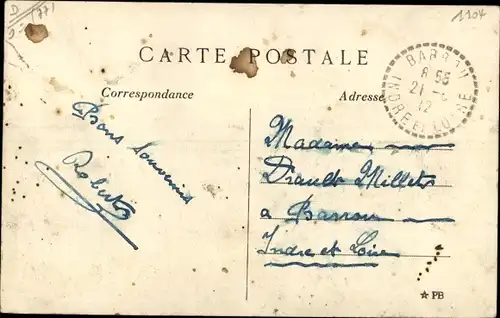 1904
CARTE POSTALE
Correspondance
Adresse
BARROU
8 55
21 -
12
INDRE ET LOIRE
Bons Souvenirs
Robert
Madame
Drault Millet
à Barrou
Indre et Loire
☆ PB